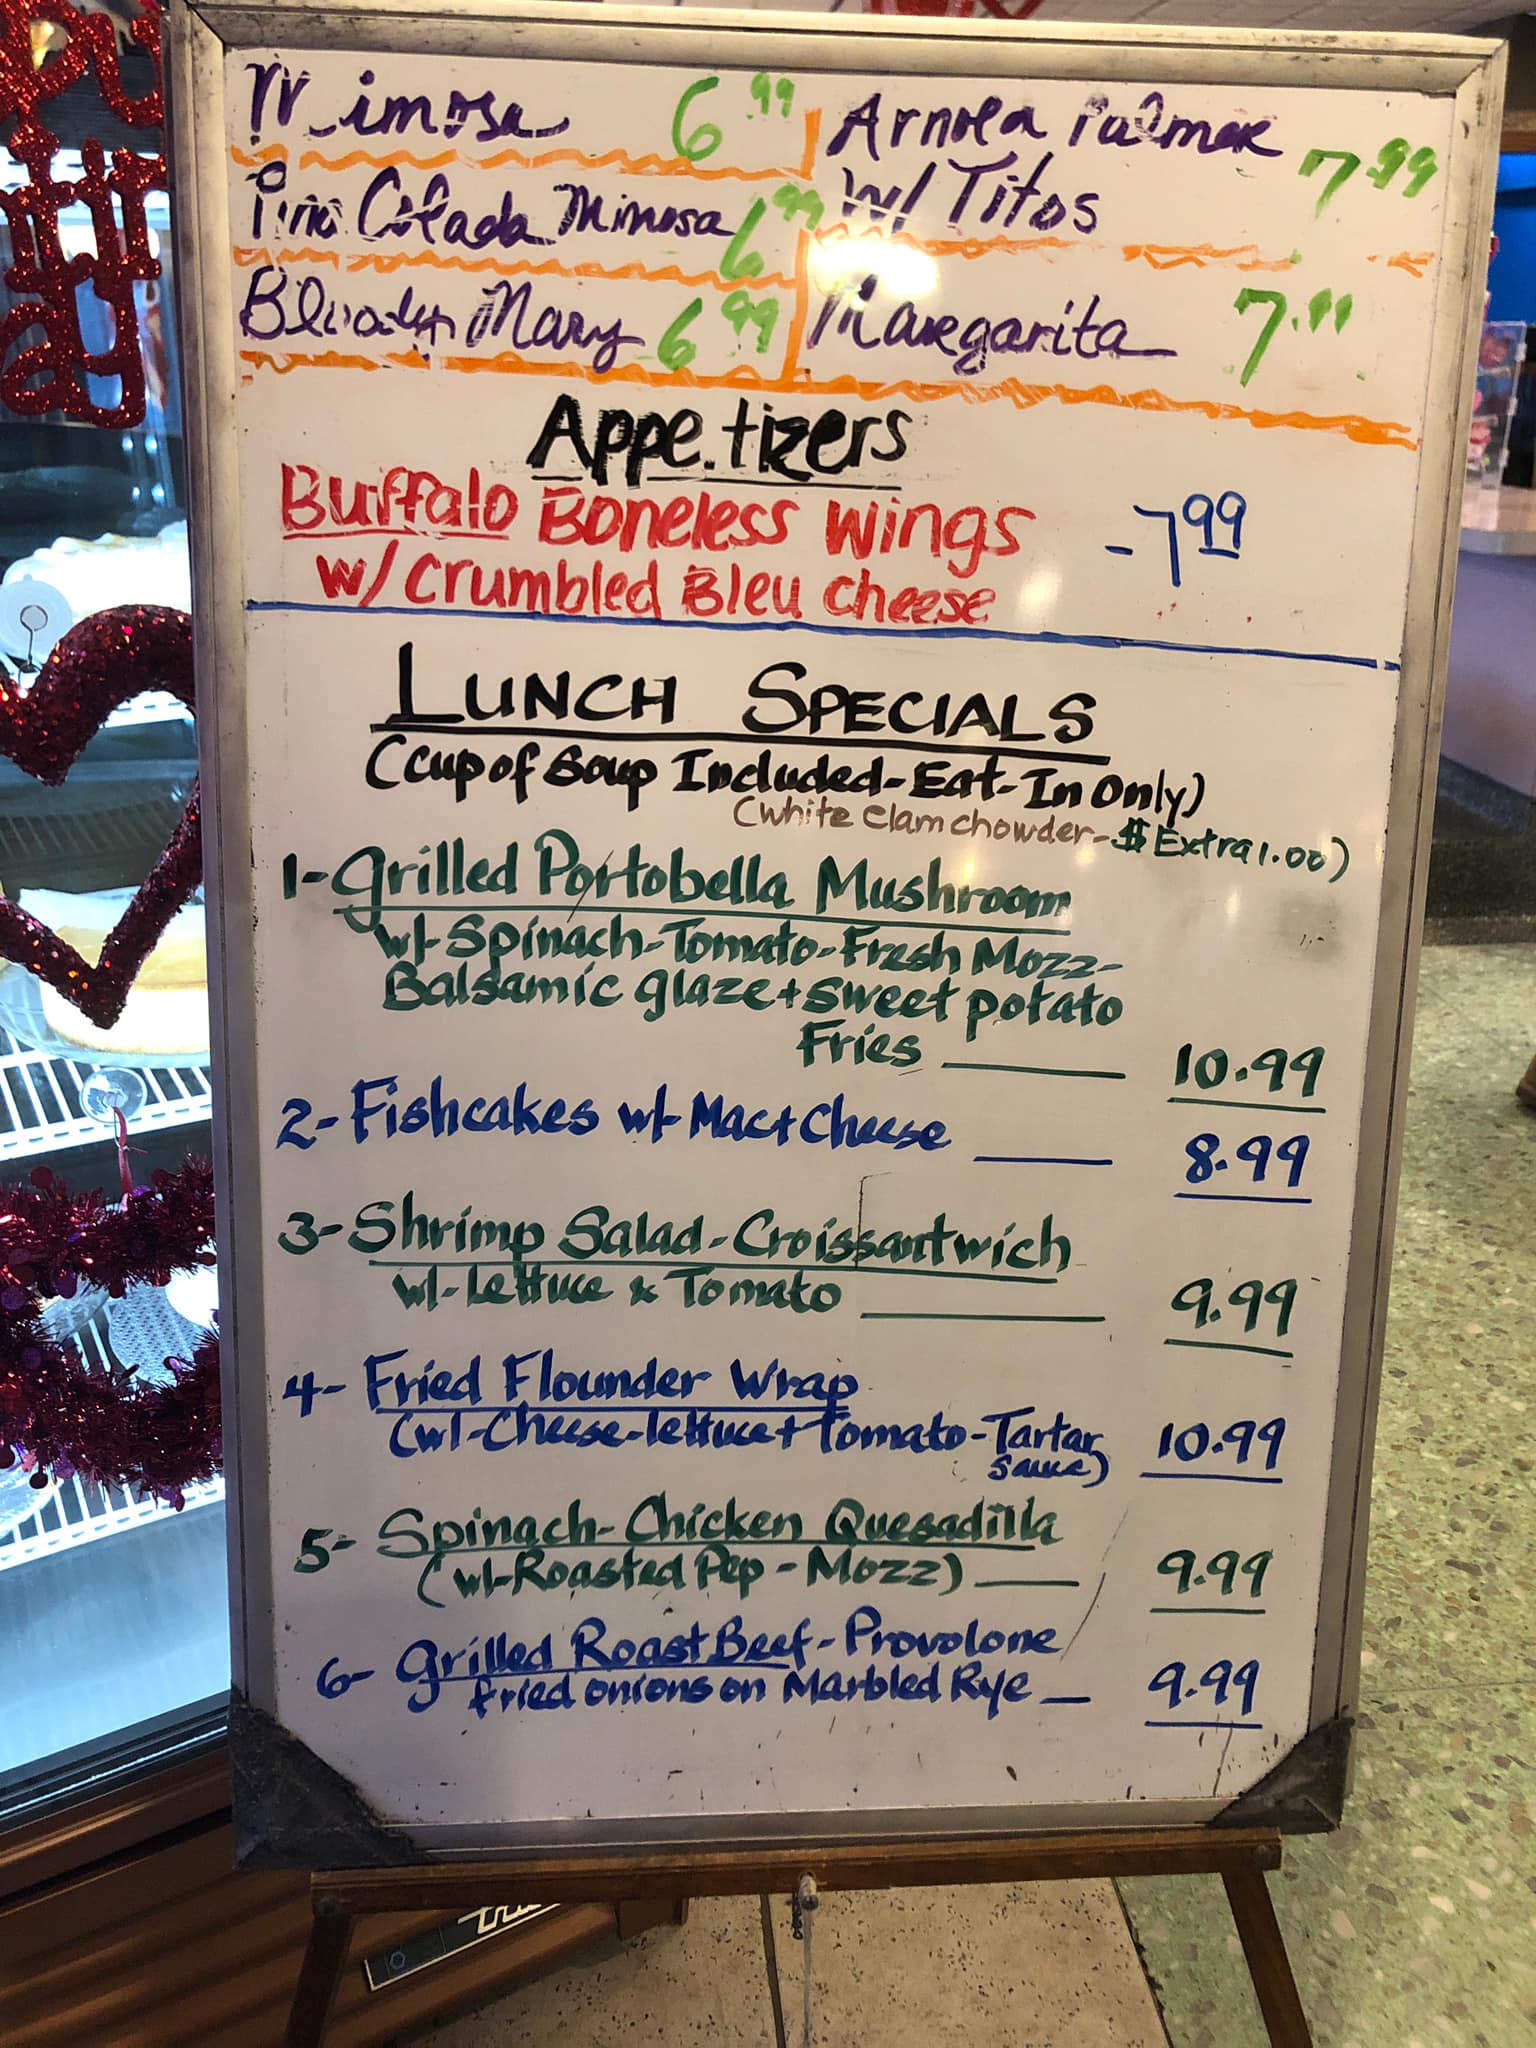 Mimosa 6.99
Pina Colada Mimosa 6.99
Bloody Mary 6.99
Arnold Palmer
W/ Titos 7.99
Margarita 7.99
Appetizers
Buffalo Boneless Wings - 7.99
w/ Crumbled Bleu Cheese
LUNCH SPECIALS
(Cup of Soup Included-Eat-In Only)
(White Clam Chowder-$Extra 1.00)
1-Grilled Portobella Mushroom
w/-Spinach-Tomato-Fresh Mozz-
Balsamic glaze + sweet potato
Fries 10.99
2-Fishcakes w/-Mac+Cheese 8.99
3-Shrimp Salad-Croissantwich
w/-Lettuce & Tomato 9.99
4-Fried Flounder Wrap
(w/-Cheese-lettuce+Tomato-Tartar 10.99
Sauce)
5-Spinach-Chicken Quesadilla
(w/-Roasted Pep-Mozz) 9.99
6-Grilled Roast Beef-Provolone
fried onions on Marbled Rye 9.99